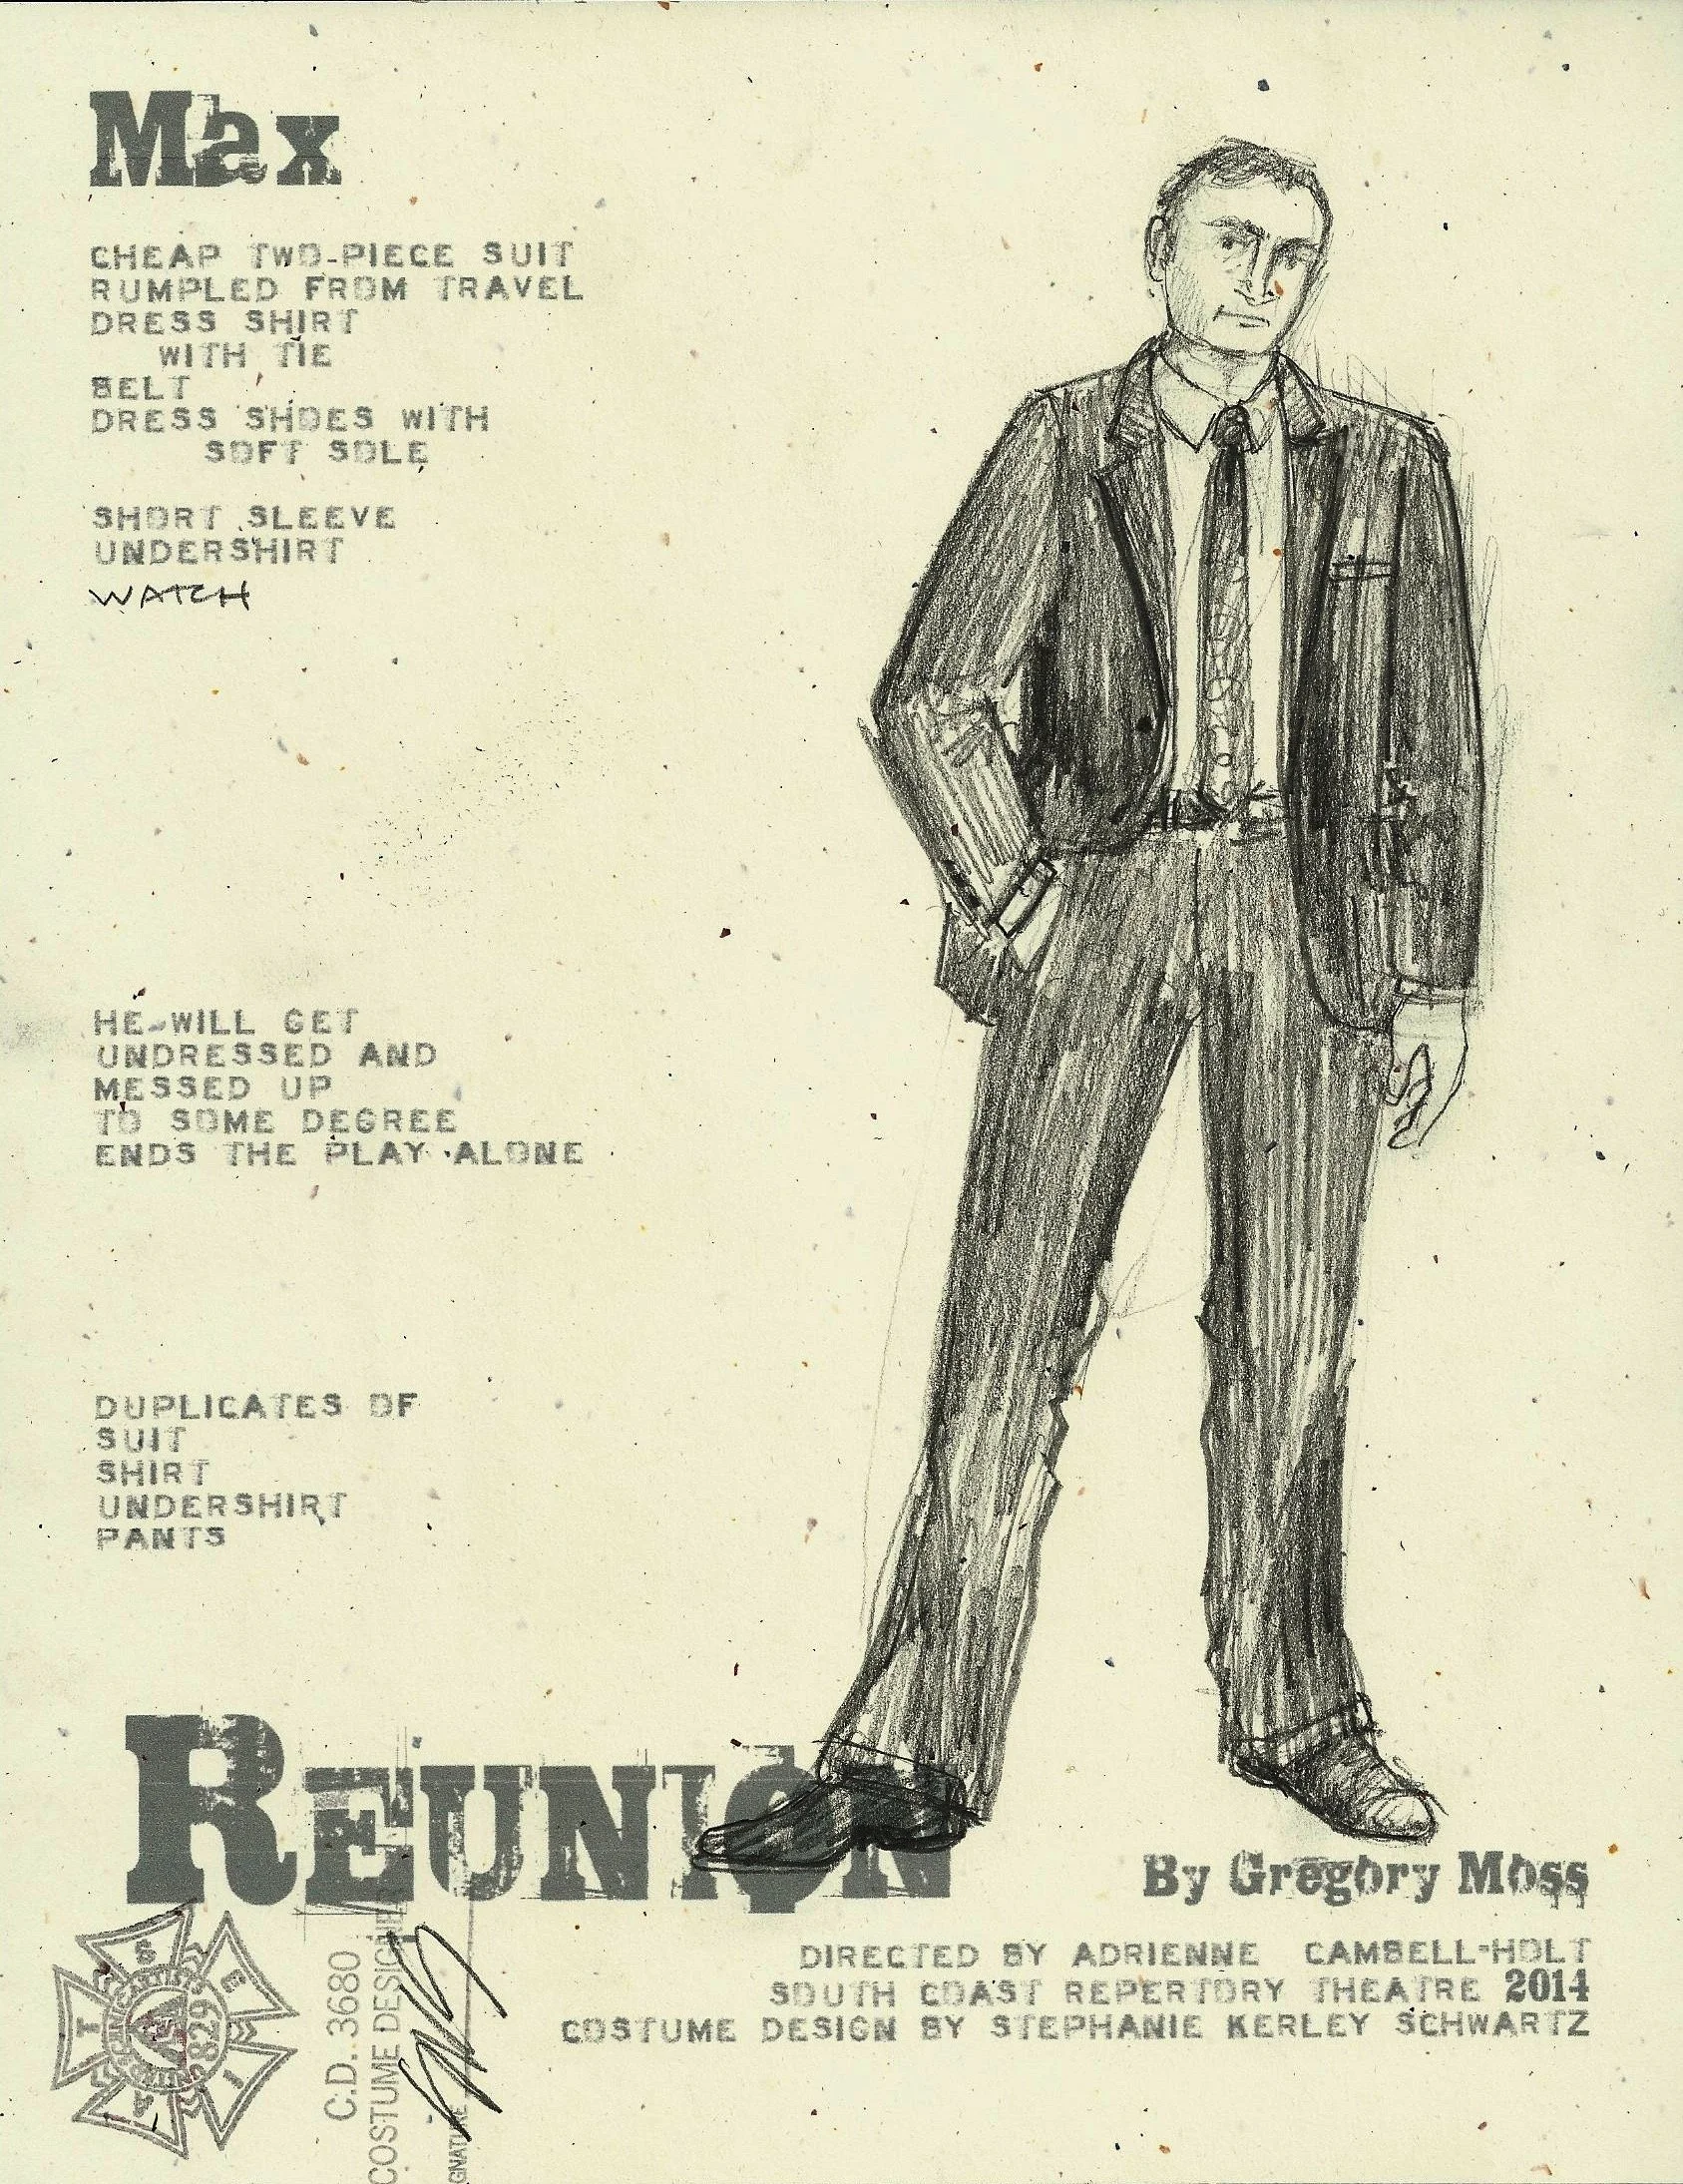 Max
CHEAP TWO-PIECE SUIT
RUMPLED FROM TRAVEL
DRESS SHIRT
WITH TIE
BELT
DRESS SHOES WITH
SOFT SOLE
SHORT SLEEVE
UNDERSHIRT
WATCH
HE WILL GET
UNDRESSED AND
MESSED UP
TO SOME DEGREE
ENDS THE PLAY ALONE
DUPLICATES OF
SUIT
SHIRT
UNDERSHIRT
PANTS
REUNION
By Gregory Moss
DIRECTED BY ADRIENNE CAMBELL-HOLT
SOUTH COAST REPERTORY THEATRE 2014
COSTUME DESIGN BY STEPHANIE KERLEY SCHWARTZ
C.D. 3680
COSTUME DESIGNER
829